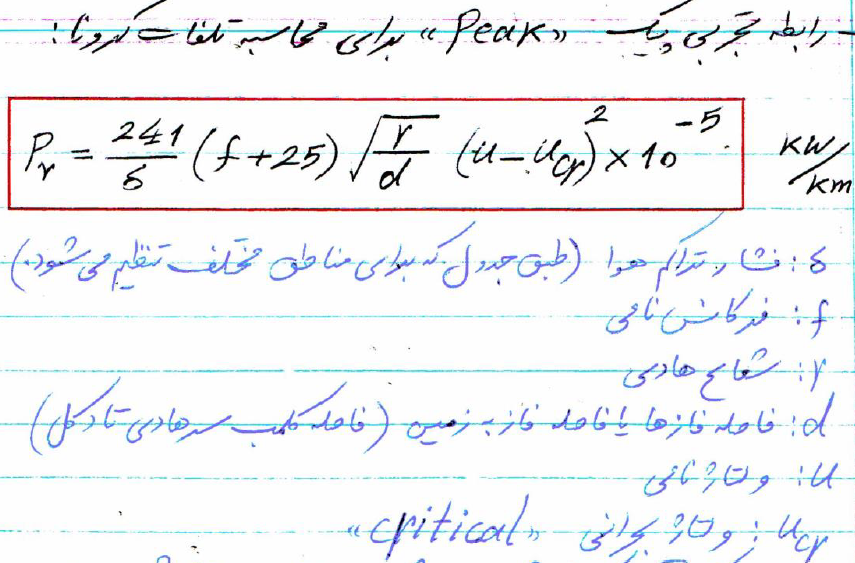 - رابطه تجربی پیک «Peak» برای محاسبه تلفات کرونا:
Pr = 241/δ (f+25) √(r/d) (u-ucr)² × 10⁻⁵ KW/Km
δ: فشار تراکم هوا (طبق جدول که برای مناطق مختلف تنظیم می‌شود.)
f: فرکانس نامی
r: شعاع هادی
d: فاصله فازها یا فاصله فاز به زمین (فاصله کلمپ سر هادی تا دکل)
u: ولتاژ نامی
ucr: ولتاژ بحرانی «critical»